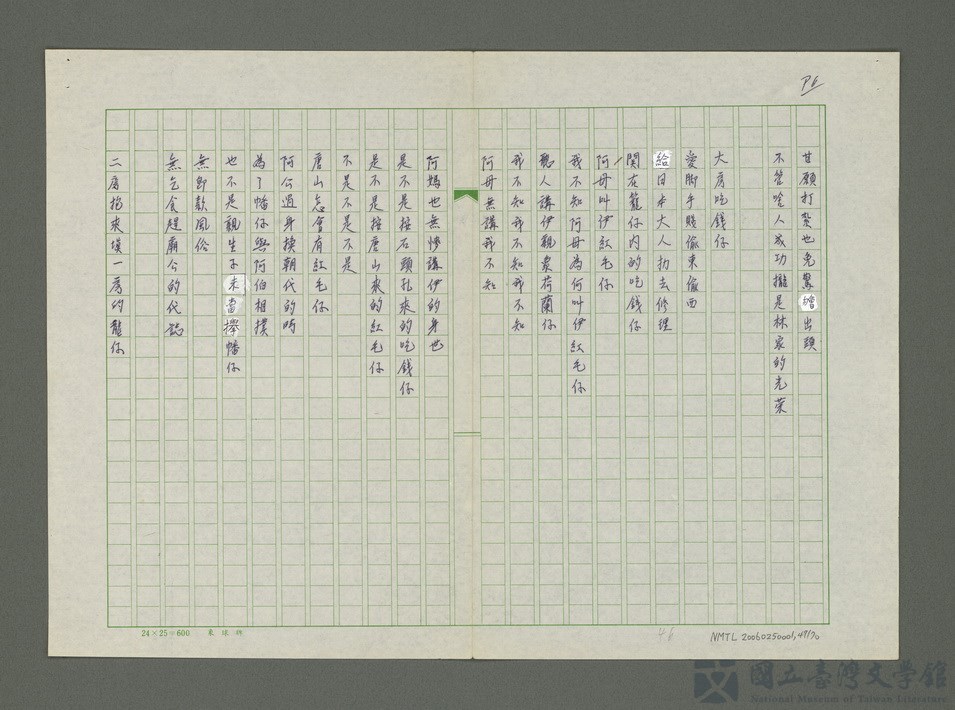 P6
甘願打整也免驚繪出頭
不管啥人成功攏是林家的光榮
大房吃錢仔
愛脚手賤偷東偷西
給日本大人扐去修理
関在籠仔内的吃錢仔
阿母叫伊紅毛仔
我不知阿母為何叫伊紅毛仔
聽人講伊親像荷蘭仔
我不知我不知我不知
阿母無講我不知
阿媽也無慘講伊的身世
是不是按石頭孔來的吃錢仔
是不是按唐山來的紅毛仔
不是不是不是
唐山怎會有紅毛仔
阿公過身換朝代的時
為了幡仔與阿伯相撲
也不是親生子未當攑幡仔
無即款風俗
無乞食趕廟公的代誌
二房抱來
一房的
24×25=600
46
NMTL 20060250001,49/70
國立臺灣文學館
National Museum of Taiwan Literature